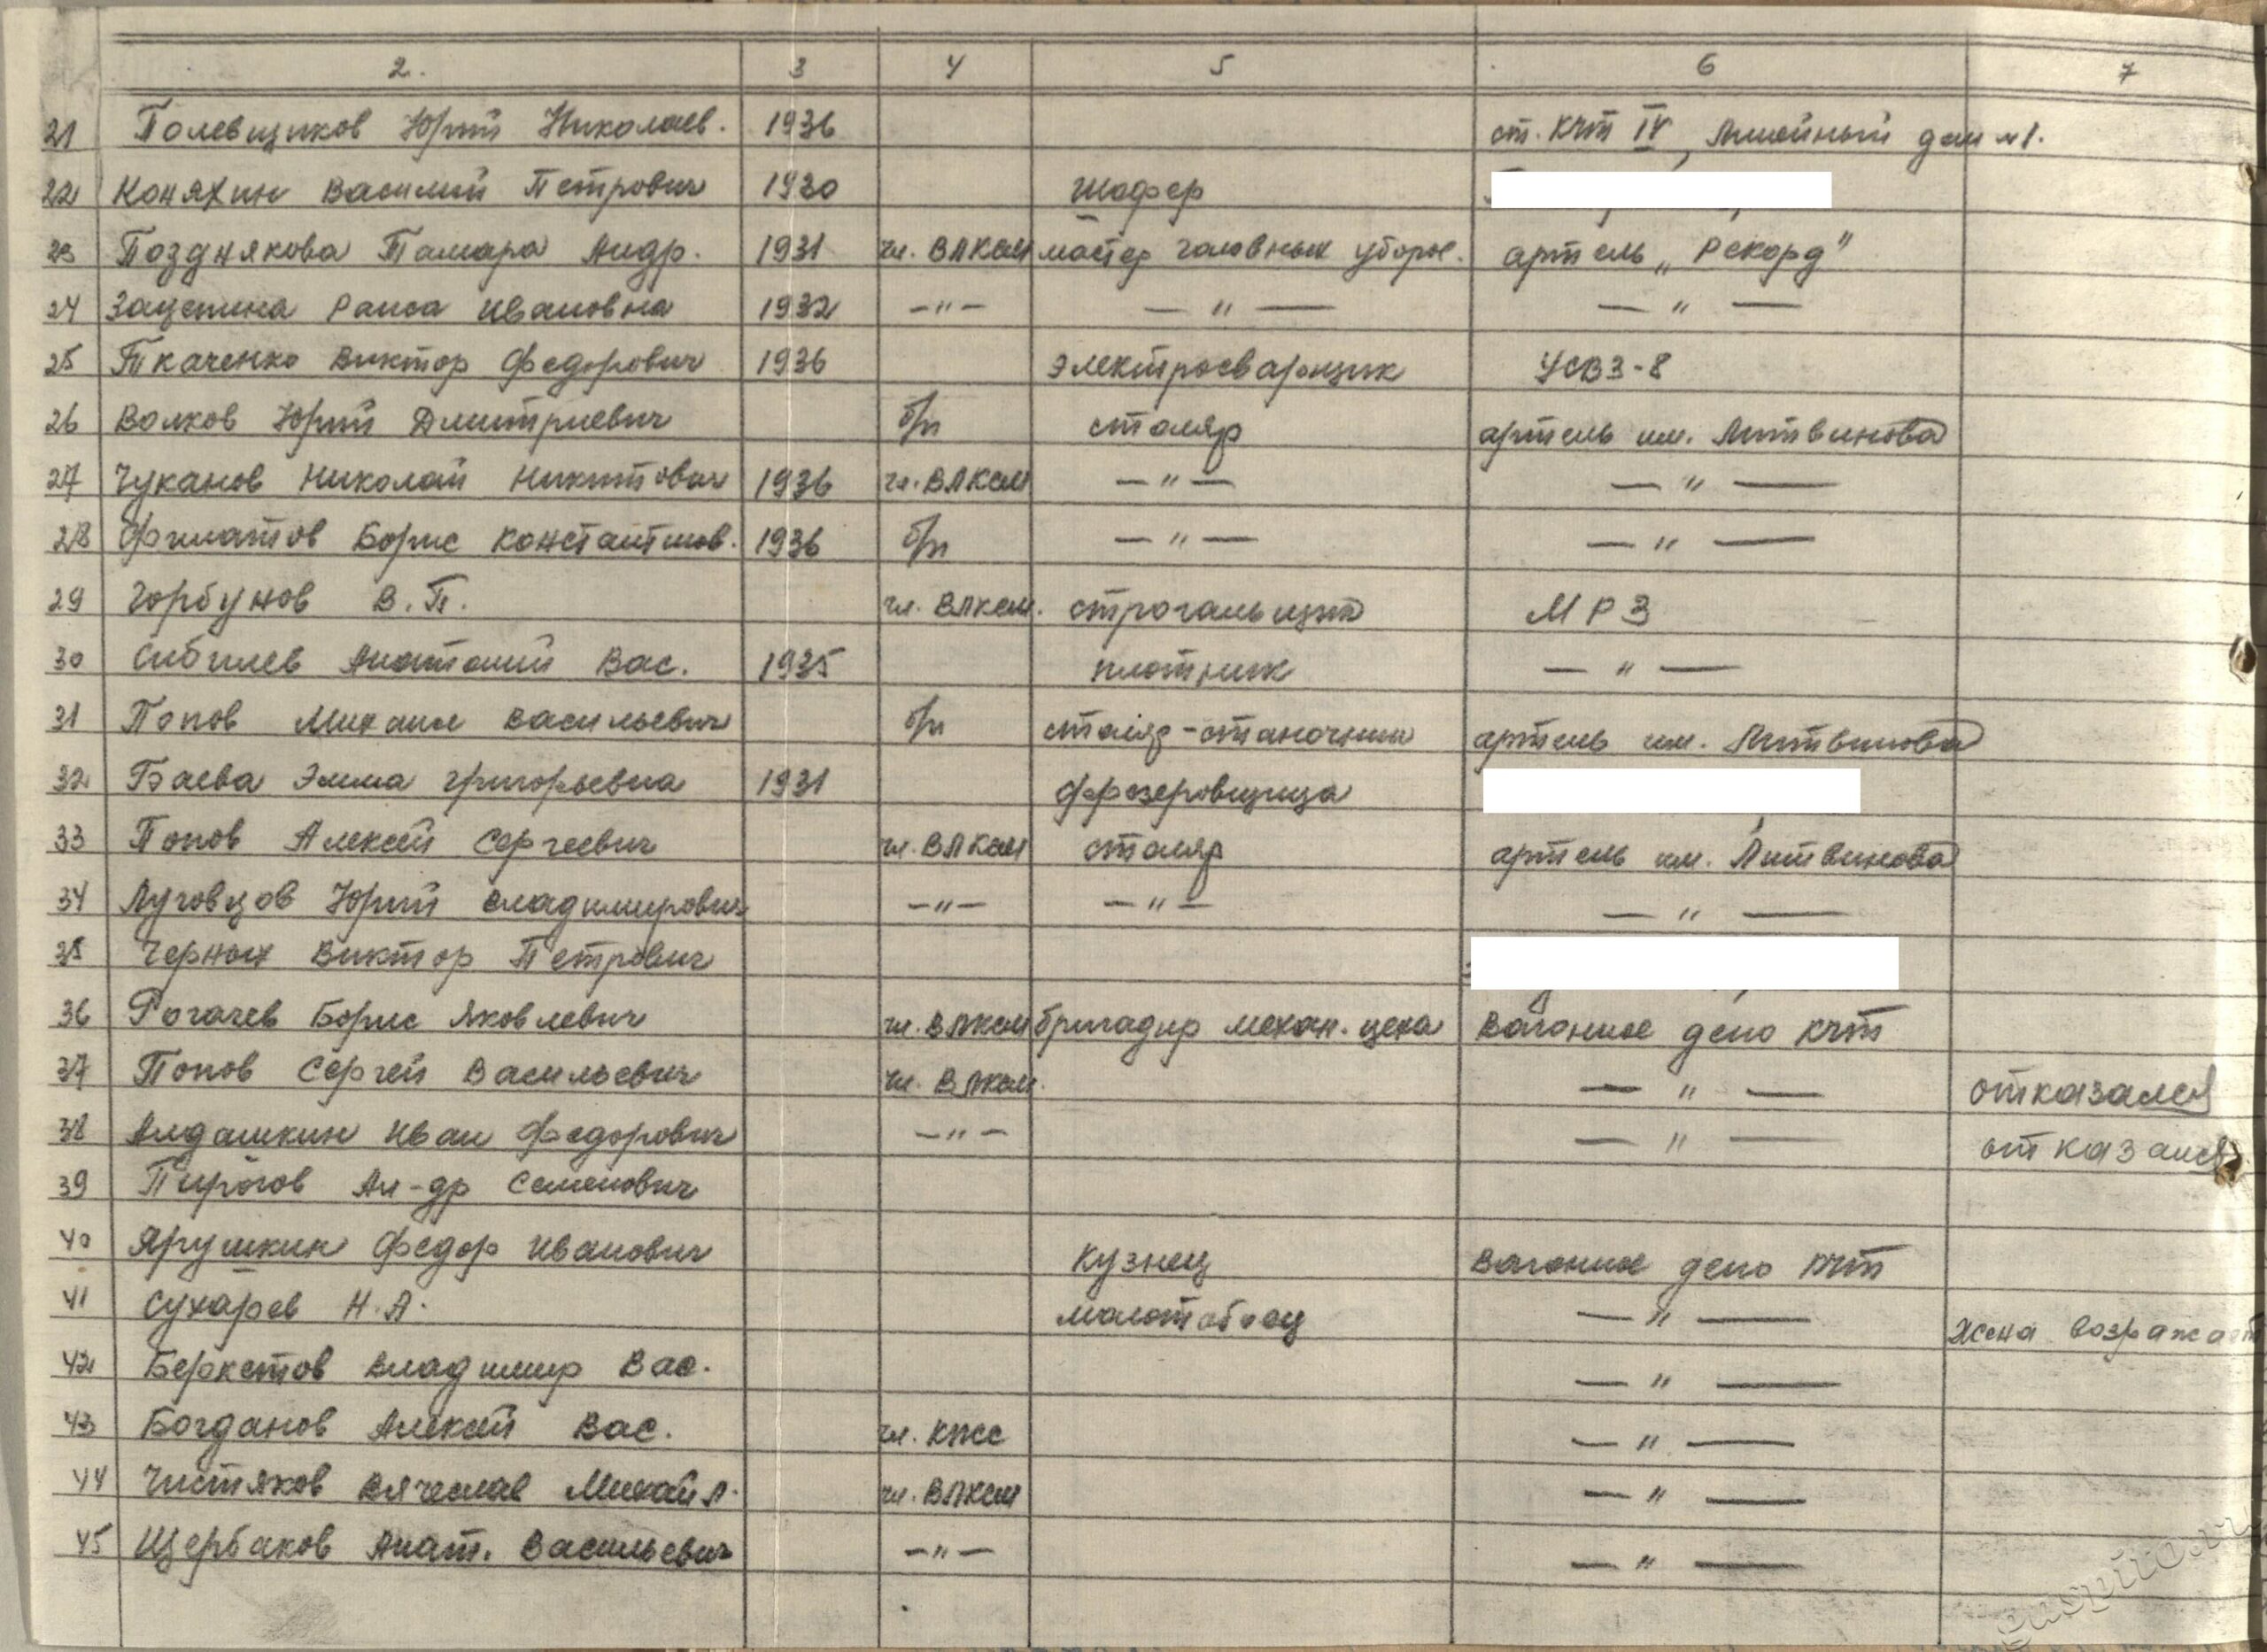 2. 3 4 5 6 7
21 Полевщиков Юрий Николаев. 1936 ст. КЧТ IV, Линейный дом №1.
22 Коняхин Василий Петрович 1930 шофер
23 Позднякова Тамара Андр. 1931 чл. ВЛКСМ мастер головных уборов. артель „Рекорд"
24 Зацепина Раиса Ивановна 1932 —"— —"— —"—
25 Ткаченко Виктор Федорович 1936 электросварщик УСВЗ-8
26 Волков Юрий Дмитриевич б/п столяр артель им. Литвинова
27 Чуканов Николай Никитович 1936 чл. ВЛКСМ —"— —"—
28 Филатов Борис Константинов. 1936 б/п —"— —"—
29 Горбунов В.П. чл. ВЛКСМ. строгальщик МРЗ
30 Сибилев Анатолий Вас. 1935 плотник —"—
31 Попов Михаил Васильевич б/п столяр-станочник артель им. Литвинова
32 Баева Эмма Григорьевна 1931 фрезеровщица
33 Попов Алексей Сергеевич чл. ВЛКСМ столяр артель им. Литвинова
34 Луговцов Юрий Владимирович —"— —"— —"—
35 Черных Виктор Петрович
36 Рогачев Борис Яковлевич чл. ВЛКСМ бригадир механ. цеха Вагонное депо КЧТ
37 Попов Сергей Васильевич чл. ВЛКСМ. —"— отказался
38 Алдашкин Иван Федорович —"— —"— отказался
39 Пирогов Ал-др Семенович
40 Ярушкин Федор Иванович кузнец Вагонное депо КЧТ
41 Сухарев Н.А. молотобоец —"— жена возражает
42 Беркетов Владимир Вас. —"—
43 Богданов Алексей Вас. чл. КПСС —"—
44 Чистяков Вячеслав Михайл. чл. ВЛКСМ —"—
45 Щербаков Анат. Васильевич —"— —"—